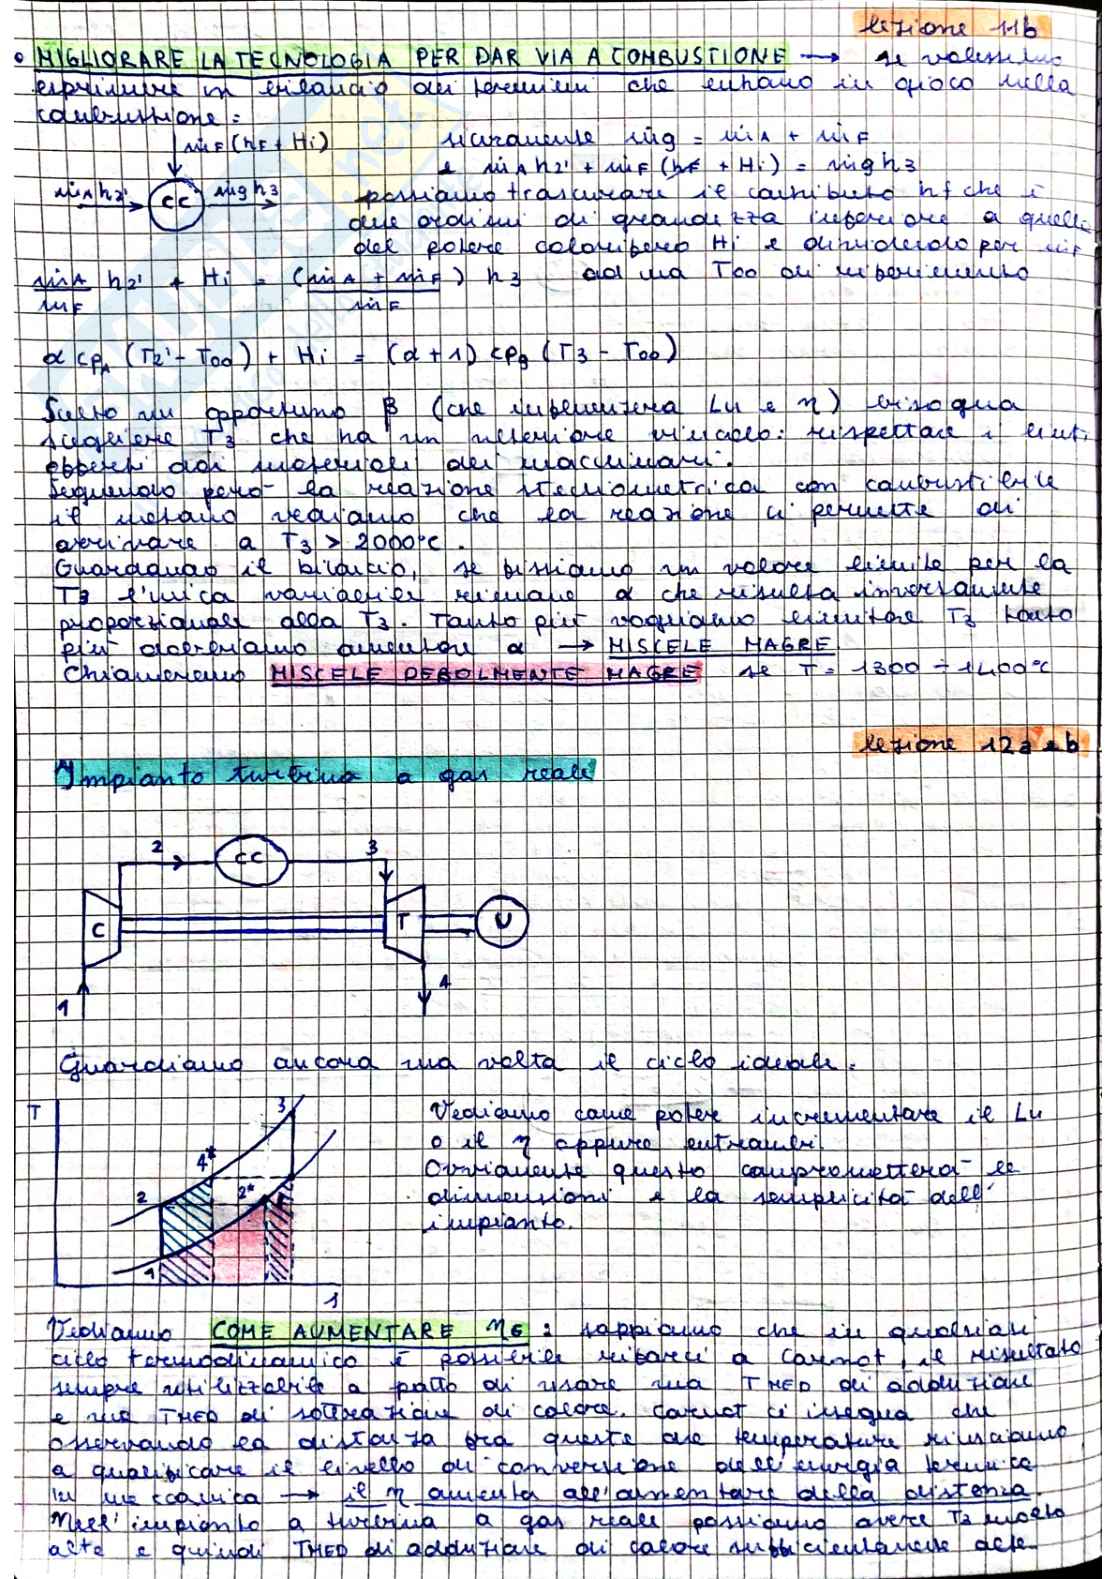 lezione 11b
• MIGLIORARE LA TECNOLOGIA PER DAR VIA A COMBUSTIONE → se volessimo
esprimere un bilancio dei termini che entrano in gioco nella
combustione:
ṁF (hF + Hi)
sicuramente ṁg = ṁA + ṁF
e ṁA h2' + ṁF (hF + Hi) = ṁg h3
ṁA h2'
CC
ṁg h3
possiamo trascurare il contributo hf che è
due ordini di grandezza inferiore a quello
del potere calorifero Hi e dividendo per ṁF
ṁA/ṁF h2' + Hi = (ṁA + ṁF)/ṁF h3 ad una Too di riferimento
α cpA (T2' - Too) + Hi = (α+1) cpg (T3 - Too)
Scelto un opportuno β (che influenzerà Lu e η) bisogna
scegliere T3 che ha un ulteriore vincolo: rispettare i limiti
offerti dai materiali dei macchinari.
Seguendo però la reazione stechiometrica con combustibile
il metano vediamo che la reazione ci permette di
arrivare a T3 > 2000°C.
Guardando il bilancio, se fissiamo un valore limite per la
T3 l'unica variabile rimane α che risulta inversamente
proporzionale alla T3. Tanto più vogliamo limitare T3 tanto
più dovremmo aumentare α → MISCELE MAGRE
Chiameremo MISCELE DEBOLMENTE MAGRE se T = 1300 ÷ 1400°C
lezione 12a e b
Impianto turbina a gas reale
2
CC
3
C
T
U
1
4
Guardiamo ancora una volta il ciclo ideale.
T
3
4*
2
2*
1
s
Vediamo come poter incrementare il Lu
o il η oppure entrambi.
Ovviamente questo comprometterà le
dimensioni e la semplicità dell'
impianto.
Vediamo COME AUMENTARE ηG : sappiamo che in qualsiasi
ciclo termodinamico è possibile rifarci a Carnot, il risultato
sempre utilizzabile a patto di usare una TMED di adduzione
e una TMED di sottrazione di calore. Carnot ci insegna che
osservando la distanza fra queste due temperature riusciamo
a qualificare il livello di conversione dell'energia termica
in meccanica → il η aumenta all'aumentare della distanza.
Nell'impianto a turbina a gas reale possiamo avere T3 molto
alte e quindi TMED di adduzione di calore sufficientemente alte.